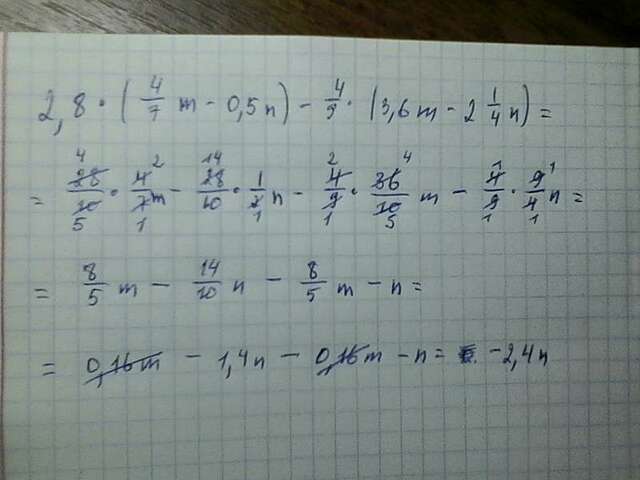 2,8 · (4/7 m - 0,5n) - 4/9 · (3,6m - 2 1/4 n) =
= 28/10 · 4/7 m - 28/10 · 1/2 n - 4/9 · 36/10 m - 4/9 · 9/4 n =
= 8/5 m - 14/10 n - 8/5 m - n =
= 0,16m - 1,4n - 0,16m - n = -2,4n